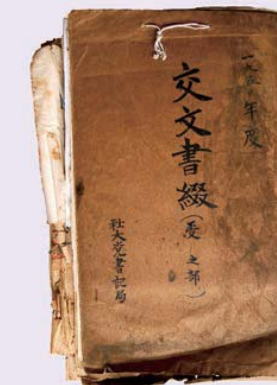 年度
交文書綴(受之部)
社大党書記局